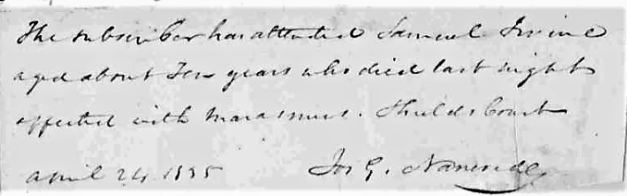 The subscriber has attended Samuel Irvine
aged about Ten years who died last night
affected with marasmus. Shields Court
April 24, 1835 Jos G. Nancrede